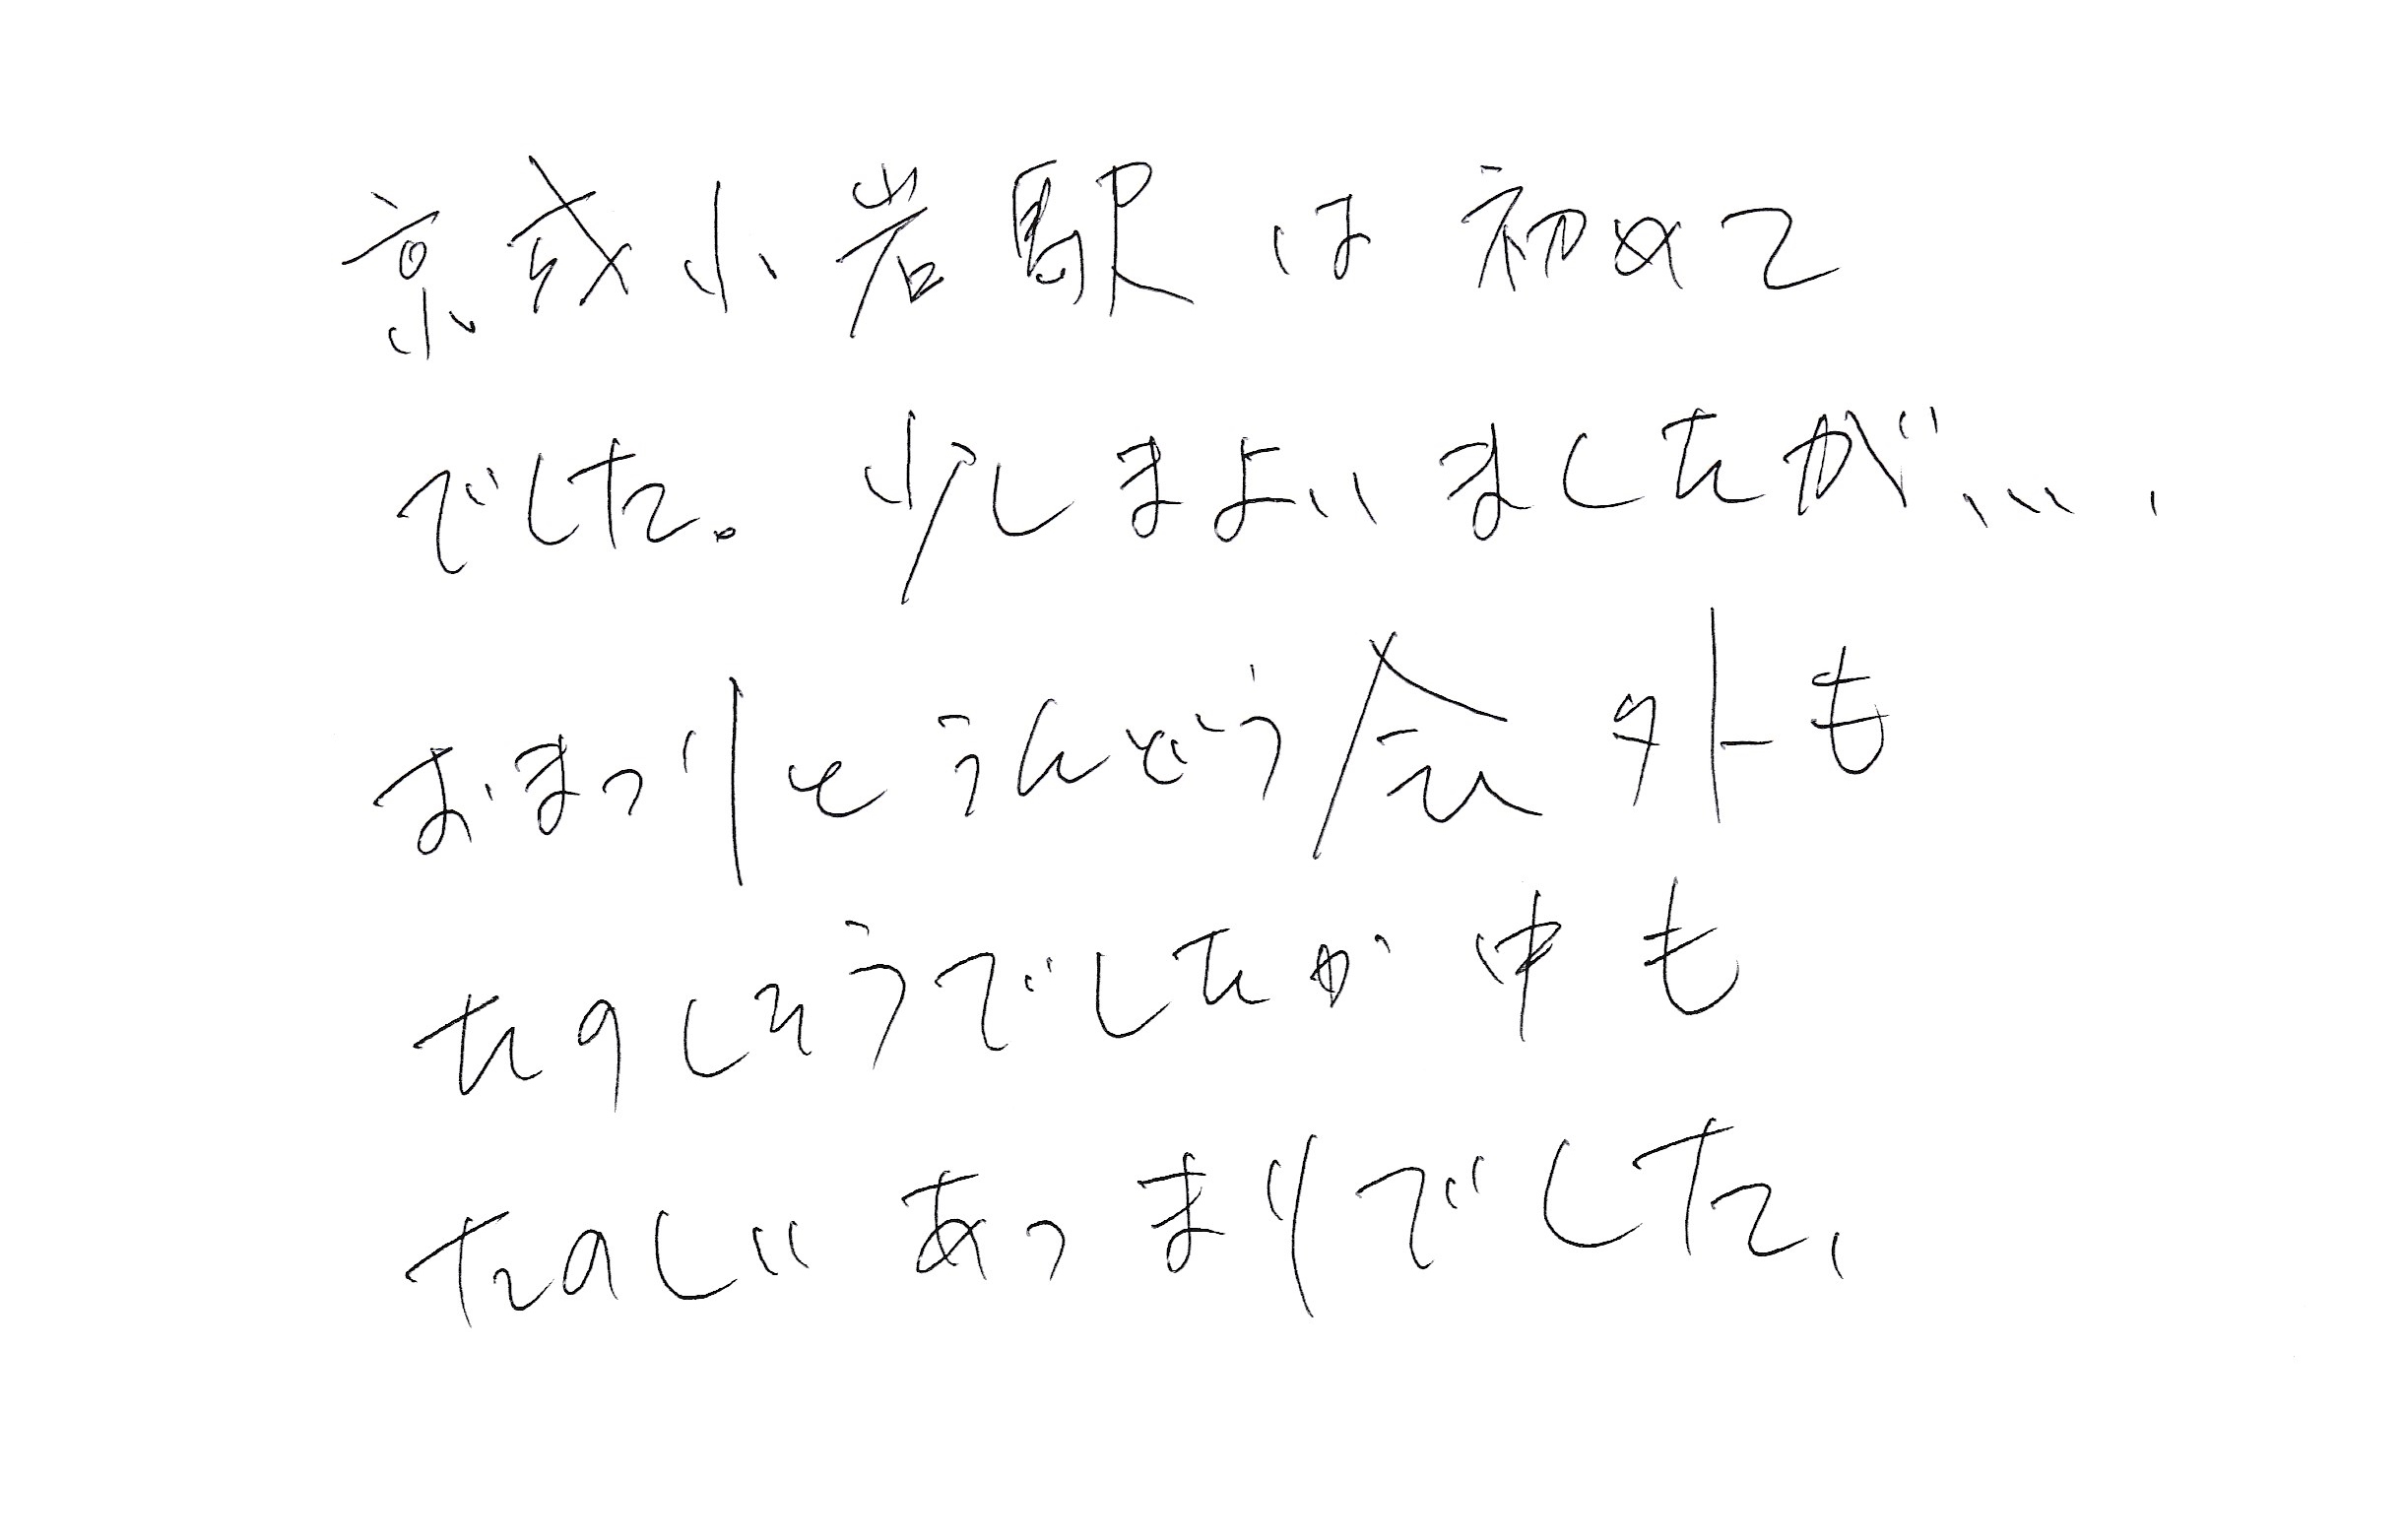 京成小岩駅は初めて
でした。少しまよいましたが、、、、
おまつりとうんどう会外も
たのしそうでしたが中も
たのしいあつまりでした、